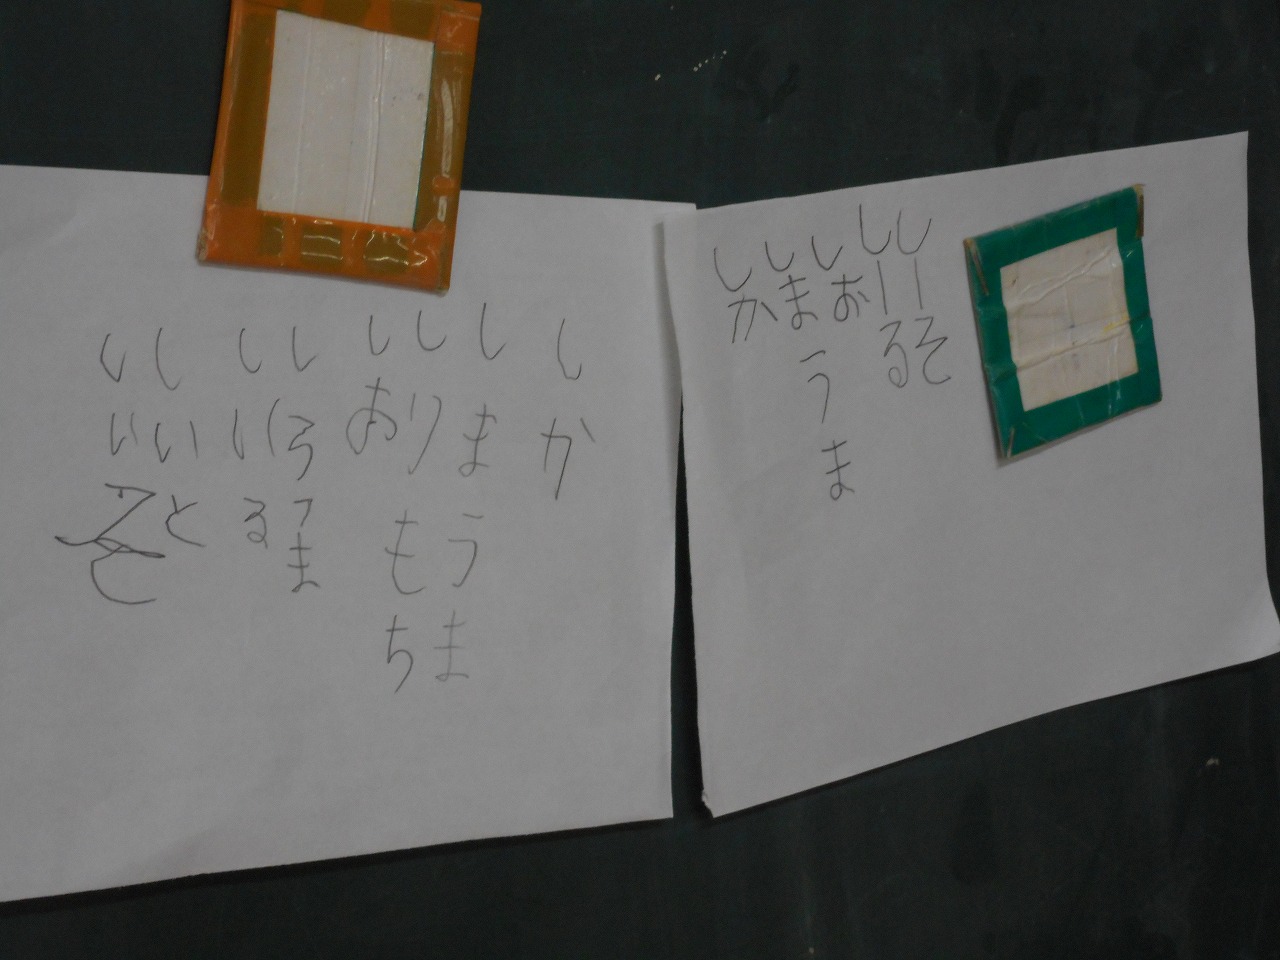 しーそ
しーる
しお
しまうま
しか
しか
しまうま
しりもち
しお
しいる
しいと
しいそ